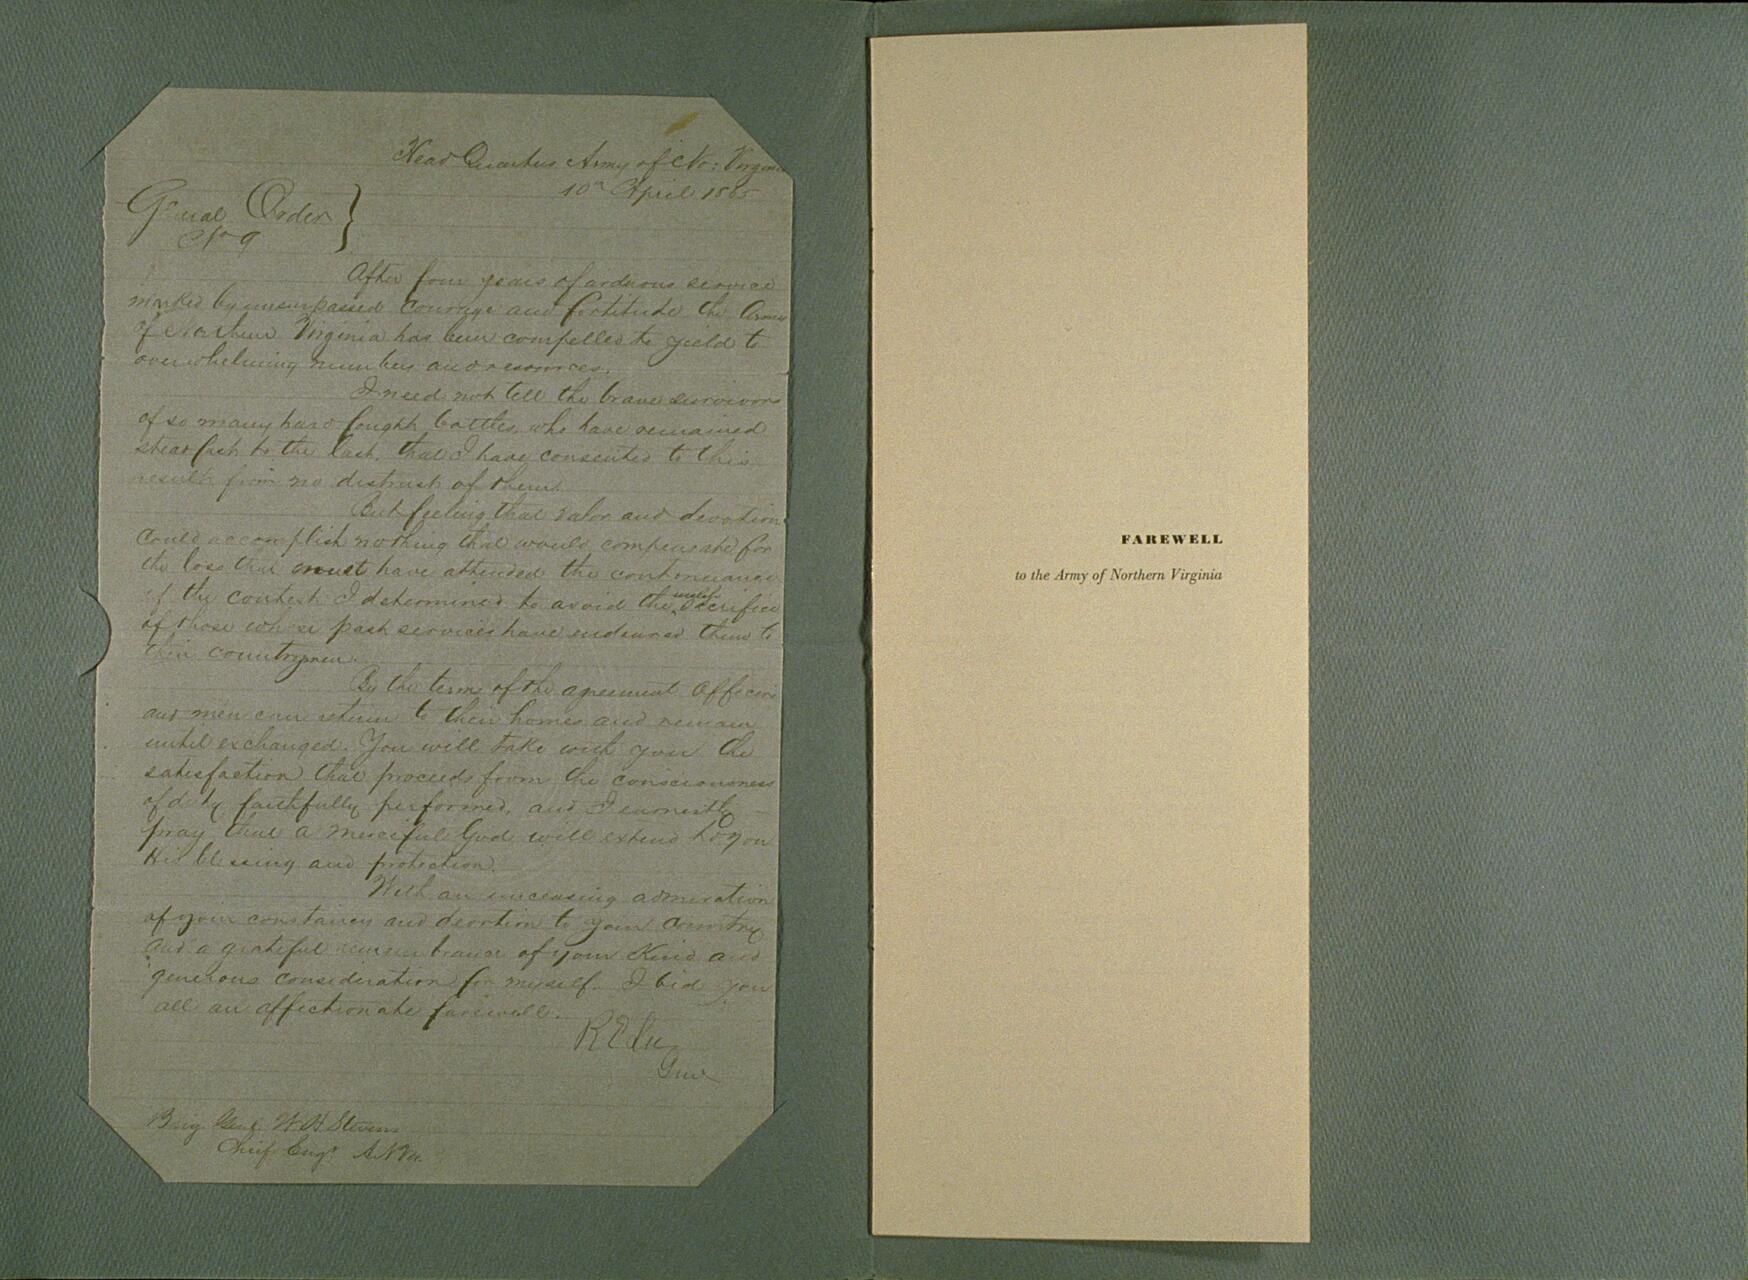 Head Quarters Army of No: Virginia
10th April 1865
General Order
No 9
After four years of arduous service
marked by unsurpassed courage and fortitude the Army
of Northern Virginia has been compelled to yield to
overwhelming numbers and resources.
I need not tell the brave survivors
of so many hard fought battles, who have remained
steadfast to the last, that I have consented to this
result from no distrust of them.
But feeling that valor and devotion
could accomplish nothing that would compensate for
the loss that must have attended the continuance
of the contest I determined to avoid the useless sacrifice
of those whose past services have endeared them to
their countrymen.
By the terms of the agreement Officers
and men can return to their homes and remain
until exchanged. You will take with you the
satisfaction that proceeds from the consciousness
of duty faithfully performed, and I earnestly
pray that a Merciful God will extend to you
His blessing and protection.
With an unceasing admiration
of your constancy and devotion to your Country
and a grateful remembrance of your kind and
generous consideration for myself. I bid you
all an affectionate farewell.
R E Lee
Genl
Brig. Genl W. H. Stevens
Chief Engr A N Va.
FAREWELL
to the Army of Northern Virginia